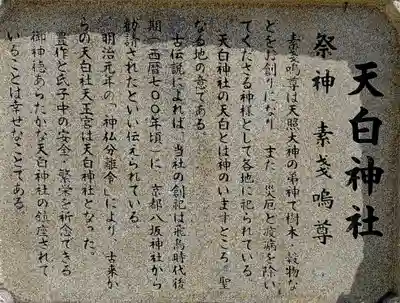 天白神社
祭神 素戔嗚尊
素戔嗚尊は天照大神の弟神で樹木・穀物な
どをお創りになり また 災厄と疫病を除い
てくださる神様として各地に祀られている。
天白神社の天白とは神のいますところ 聖
なる地の意である。
古伝説によれば、当社の創祀は飛鳥時代後
期(西暦七〇〇年頃)に 京都八坂神社から
勧請されたといい伝えられている。
明治元年の「神仏分離令」により 古来か
らの天白社天王宮は天白神社となった。
豊作と氏子中の安全・繁栄を祈念できる
御神徳あらたかな天白神社の鎮座されて
いることは幸せなことである。